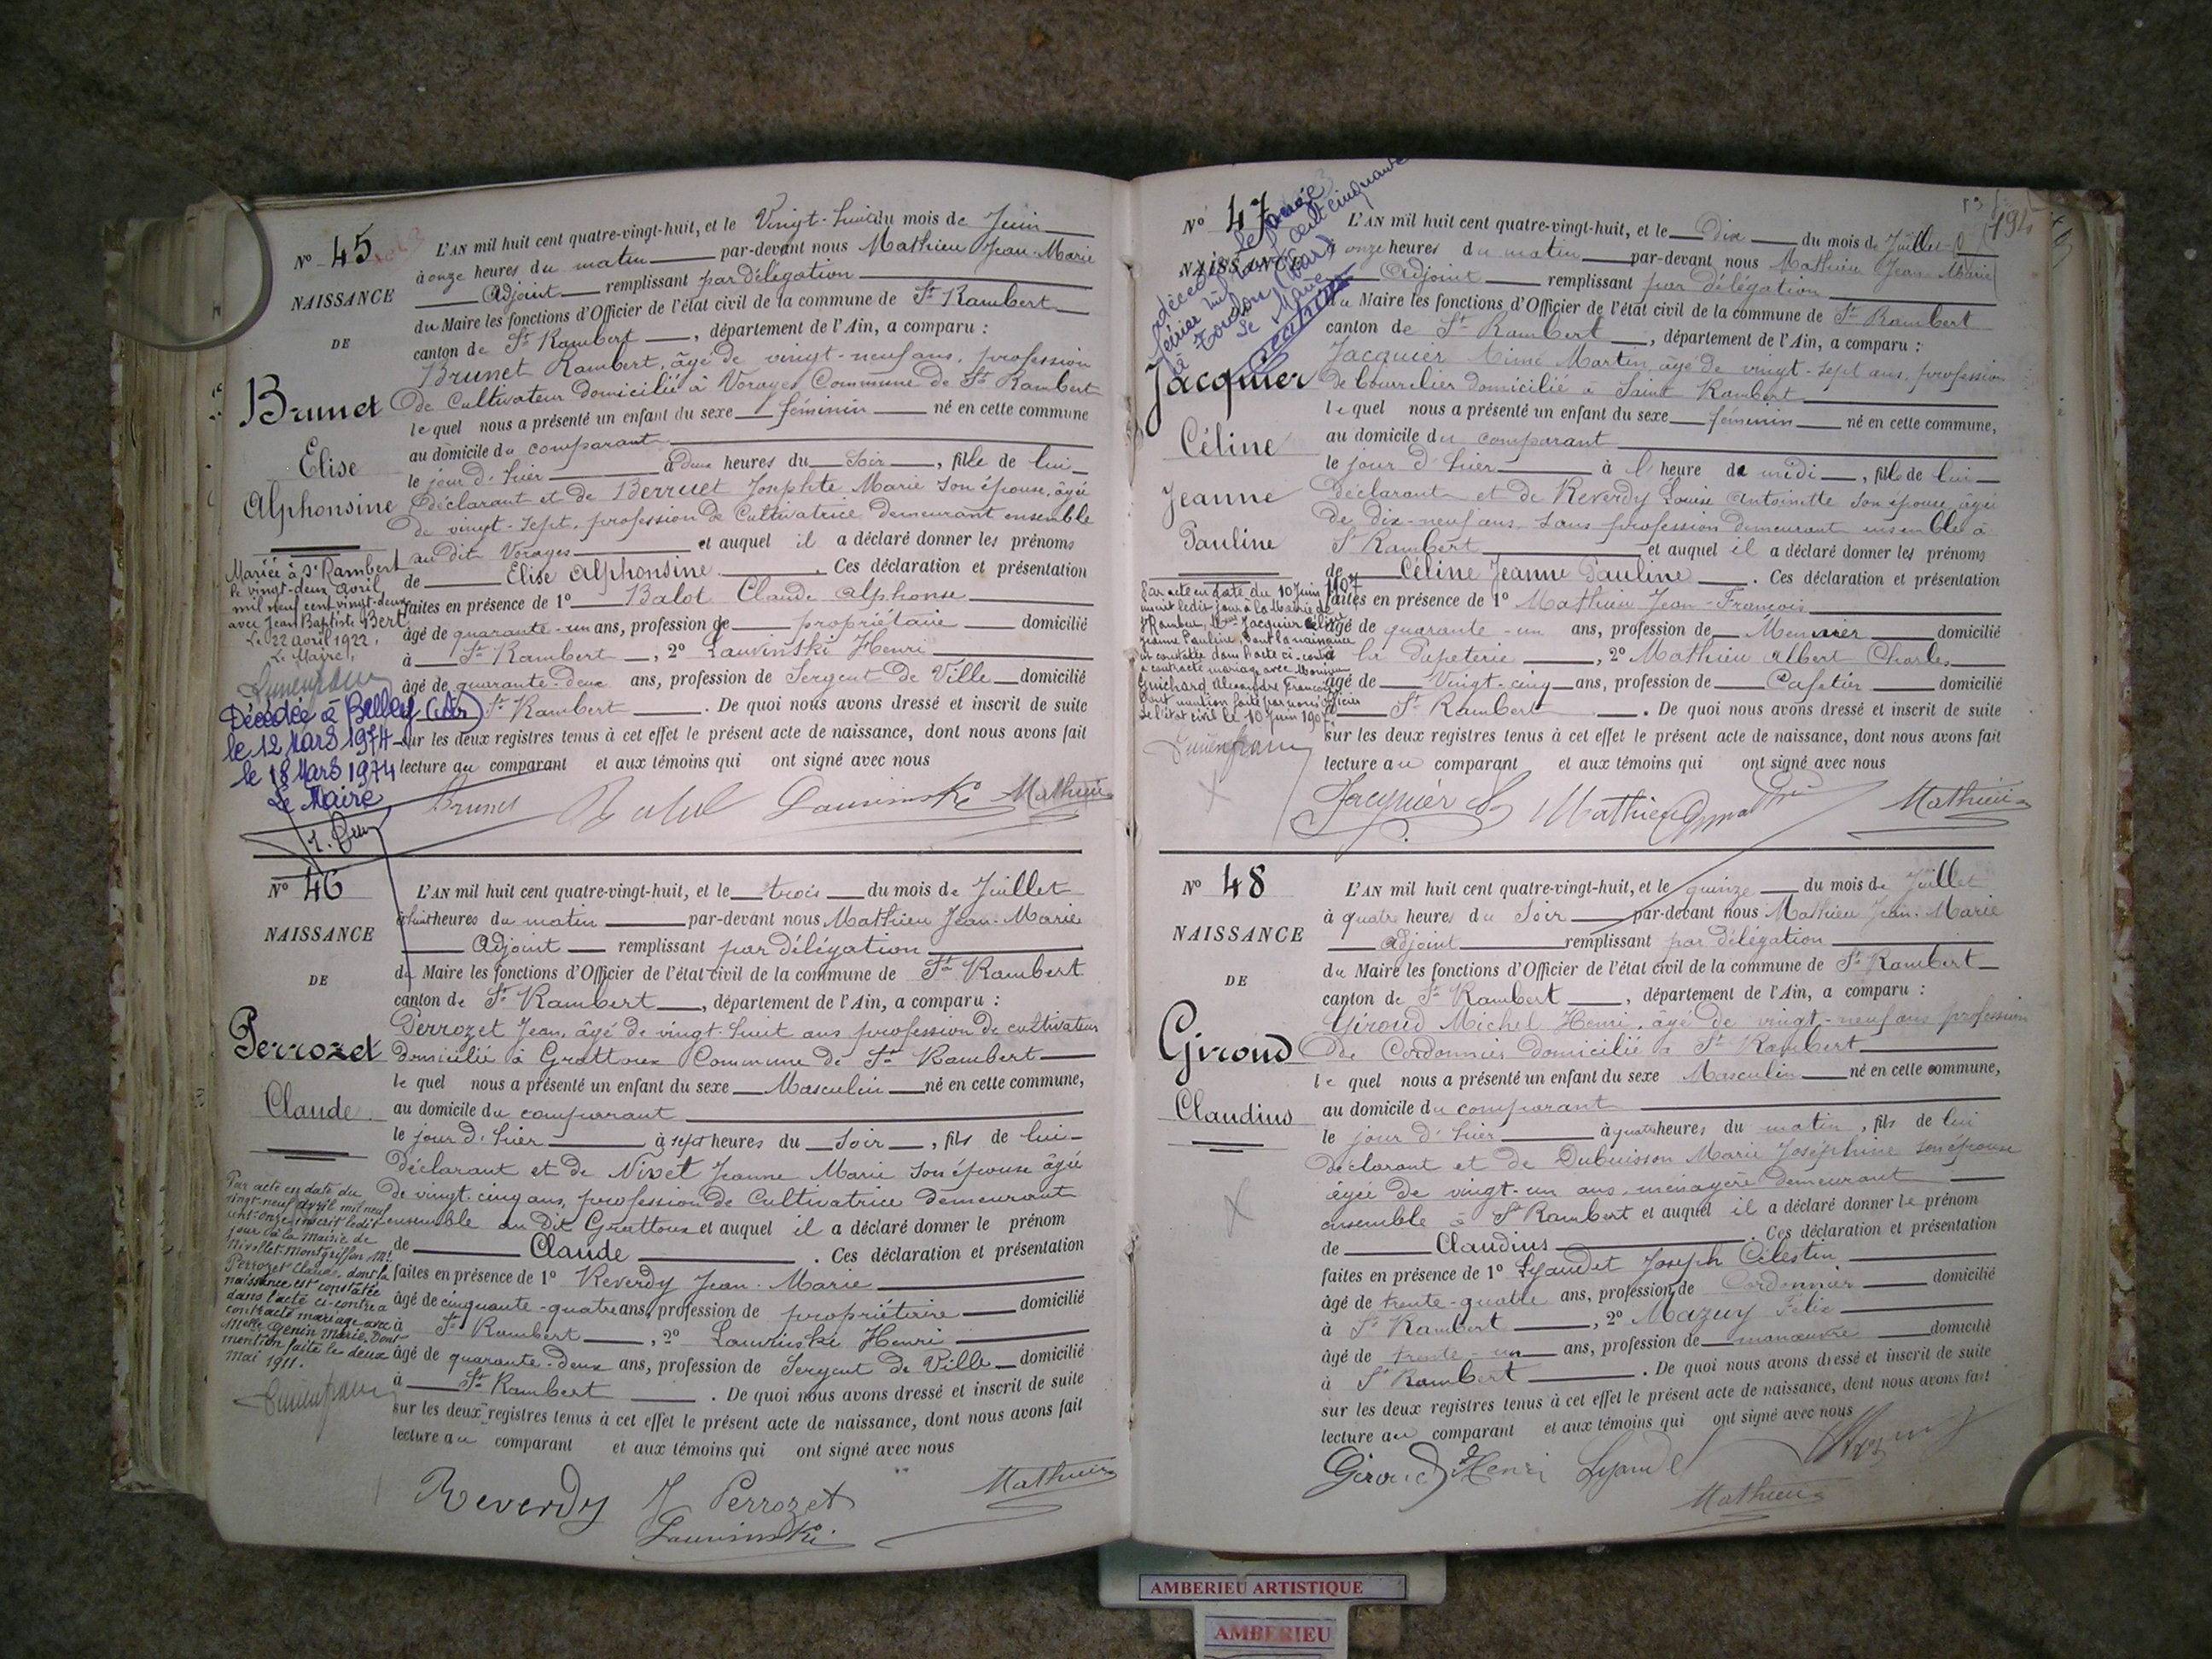 N° 45
NAISSANCE
DE
Brunet
Elise
Alphonsine
Mariée à St Rambert
le vingt-deux avril
mil neuf cent vingt-deux
avec Jean Baptiste Bert.
Le 22 avril 1922.
Le Maire,
Décédée à Belley (Ain)
le 12 Mars 1974
le 18 Mars 1974
Le Maire
L'AN mil huit cent quatre-vingt-huit, et le Vingt-huit du mois de Juin
à onze heures du matin par-devant nous Mathieu Jean-Marie
Adjoint remplissant par délégation
du Maire les fonctions d'Officier de l'état civil de la commune de St Rambert
canton de St Rambert, département de l'Ain, a comparu :
Brunet Rambert, âgé de vingt-neuf ans, profession
de Cultivateur domicilié à Vorages Commune de St Rambert
lequel nous a présenté un enfant du sexe féminin né en cette commune
au domicile du comparant
le jour d'hier à deux heures du soir, fille de lui
déclarant et de Berruet Josephte Marie son épouse, âgée
de vingt-sept, profession de Cultivatrice demeurant ensemble
au dit Vorages et auquel il a déclaré donner les prénoms
de Elise Alphonsine. Ces déclaration et présentation
faites en présence de 1° Balot Claude Alphonse
âgé de quarante-un ans, profession de propriétaire domicilié
à St Rambert, 2° Lauvinski Henri
âgé de quarante-deux ans, profession de Sergent de Ville domicilié
St Rambert. De quoi nous avons dressé et inscrit de suite
sur les deux registres tenus à cet effet le présent acte de naissance, dont nous avons fait
lecture au comparant et aux témoins qui ont signé avec nous
Brunet Lauvinski Mathieu
N° 46
NAISSANCE
DE
Perrozet
Claude
Par acte en date du
vingt-neuf avril mil neuf
cent onze inscrit ledit
jour à la Mairie de
Nivollet-Montgriffon, Mr
Perrozet Claude, dont la
naissance est constatée
dans l'acte ci-contre a
contracté mariage avec
Melle Genin Marie. Dont
mention faite le deux
mai 1911.
L'AN mil huit cent quatre-vingt-huit, et le trois du mois de Juillet
à huit heures du matin par-devant nous Mathieu Jean-Marie
Adjoint remplissant par délégation
du Maire les fonctions d'Officier de l'état civil de la commune de St Rambert
canton de St Rambert, département de l'Ain, a comparu :
Perrozet Jean, âgé de vingt-huit ans profession de cultivateur
domicilié à Grattoux Commune de St Rambert
lequel nous a présenté un enfant du sexe Masculin né en cette commune,
au domicile du comparant
le jour d'hier à sept heures du soir, fils de lui
déclarant et de Nivet Jeanne Marie son épouse âgée
de vingt-cinq ans, profession de Cultivatrice demeurant
ensemble au dit Grattoux et auquel il a déclaré donner le prénom
de Claude. Ces déclaration et présentation
faites en présence de 1° Reverdy Jean-Marie
âgé de cinquante-quatre ans, profession de propriétaire domicilié
à St Rambert, 2° Lauvinski Henri
âgé de quarante-deux ans, profession de Sergent de Ville domicilié
à St Rambert. De quoi nous avons dressé et inscrit de suite
sur les deux registres tenus à cet effet le présent acte de naissance, dont nous avons fait
lecture au comparant et aux témoins qui ont signé avec nous
Reverdy J Perrozet Mathieu
Lauvinski
N° 47
NAISSANCE
Jacquier
Céline
Jeanne
Pauline
Par acte en date du 10 Juin 1907
inscrit ledit jour à la Mairie de
St Rambert, Jacquier Céline
Jeanne Pauline dont la naissance
est constatée dans l'acte ci-contre
a contracté mariage avec Monsieur
Guichard Alexandre François
Dont mention faite par nous Officier
de l'état civil le 10 Juin 1907.
L'AN mil huit cent quatre-vingt-huit, et le Dix du mois de Juillet
à onze heures du matin par-devant nous Mathieu Jean Marie
Adjoint remplissant par délégation
du Maire les fonctions d'Officier de l'état civil de la commune de St Rambert
canton de St Rambert, département de l'Ain, a comparu :
Jacquier Aimé Martin, âgé de vingt-sept ans, profession
de bourrelier domicilié à Saint Rambert
lequel nous a présenté un enfant du sexe féminin né en cette commune,
au domicile du comparant
le jour d'hier à l'heure de midi, fille de lui
déclarant et de Reverdy Louise Antoinette son épouse, âgée
de dix-neuf ans sans profession demeurant ensemble à
St Rambert et auquel il a déclaré donner les prénoms
de Céline Jeanne Pauline. Ces déclaration et présentation
faites en présence de 1° Mathieu Jean-François
âgé de quarante-un ans, profession de Meunier domicilié
à la Papeterie, 2° Mathieu Albert Charles
âgé de Vingt-cinq ans, profession de Cafetier domicilié
St Rambert. De quoi nous avons dressé et inscrit de suite
sur les deux registres tenus à cet effet le présent acte de naissance, dont nous avons fait
lecture au comparant et aux témoins qui ont signé avec nous
Jacquier Mathieu Mathieu
N° 48
NAISSANCE
DE
Giroud
Claudius
L'AN mil huit cent quatre-vingt-huit, et le quinze du mois de Juillet
à quatre heures du soir par-devant nous Mathieu Jean-Marie
Adjoint remplissant par délégation
du Maire les fonctions d'Officier de l'état civil de la commune de St Rambert
canton de St Rambert, département de l'Ain, a comparu :
Giroud Michel Henri, âgé de vingt-neuf ans profession
de Cordonnier domicilié à St Rambert
lequel nous a présenté un enfant du sexe Masculin né en cette commune,
au domicile du comparant
le jour d'hier à quatre heures du matin, fils de lui
déclarant et de Dubuisson Marie Joséphine son épouse
âgée de vingt-un ans, ménagère demeurant
ensemble à St Rambert et auquel il a déclaré donner le prénom
de Claudius. Ces déclaration et présentation
faites en présence de 1° Lyaudet Joseph Célestin
âgé de trente-quatre ans, profession de Cordonnier domicilié
à St Rambert, 2° Mazuy Félix
âgé de trente-un ans, profession de manœuvre domicilié
à St Rambert. De quoi nous avons dressé et inscrit de suite
sur les deux registres tenus à cet effet le présent acte de naissance, dont nous avons fait
lecture au comparant et aux témoins qui ont signé avec nous
Giroud Henri Lyaudet
Mathieu
AMBERIEU ARTISTIQUE
AMBERIEU